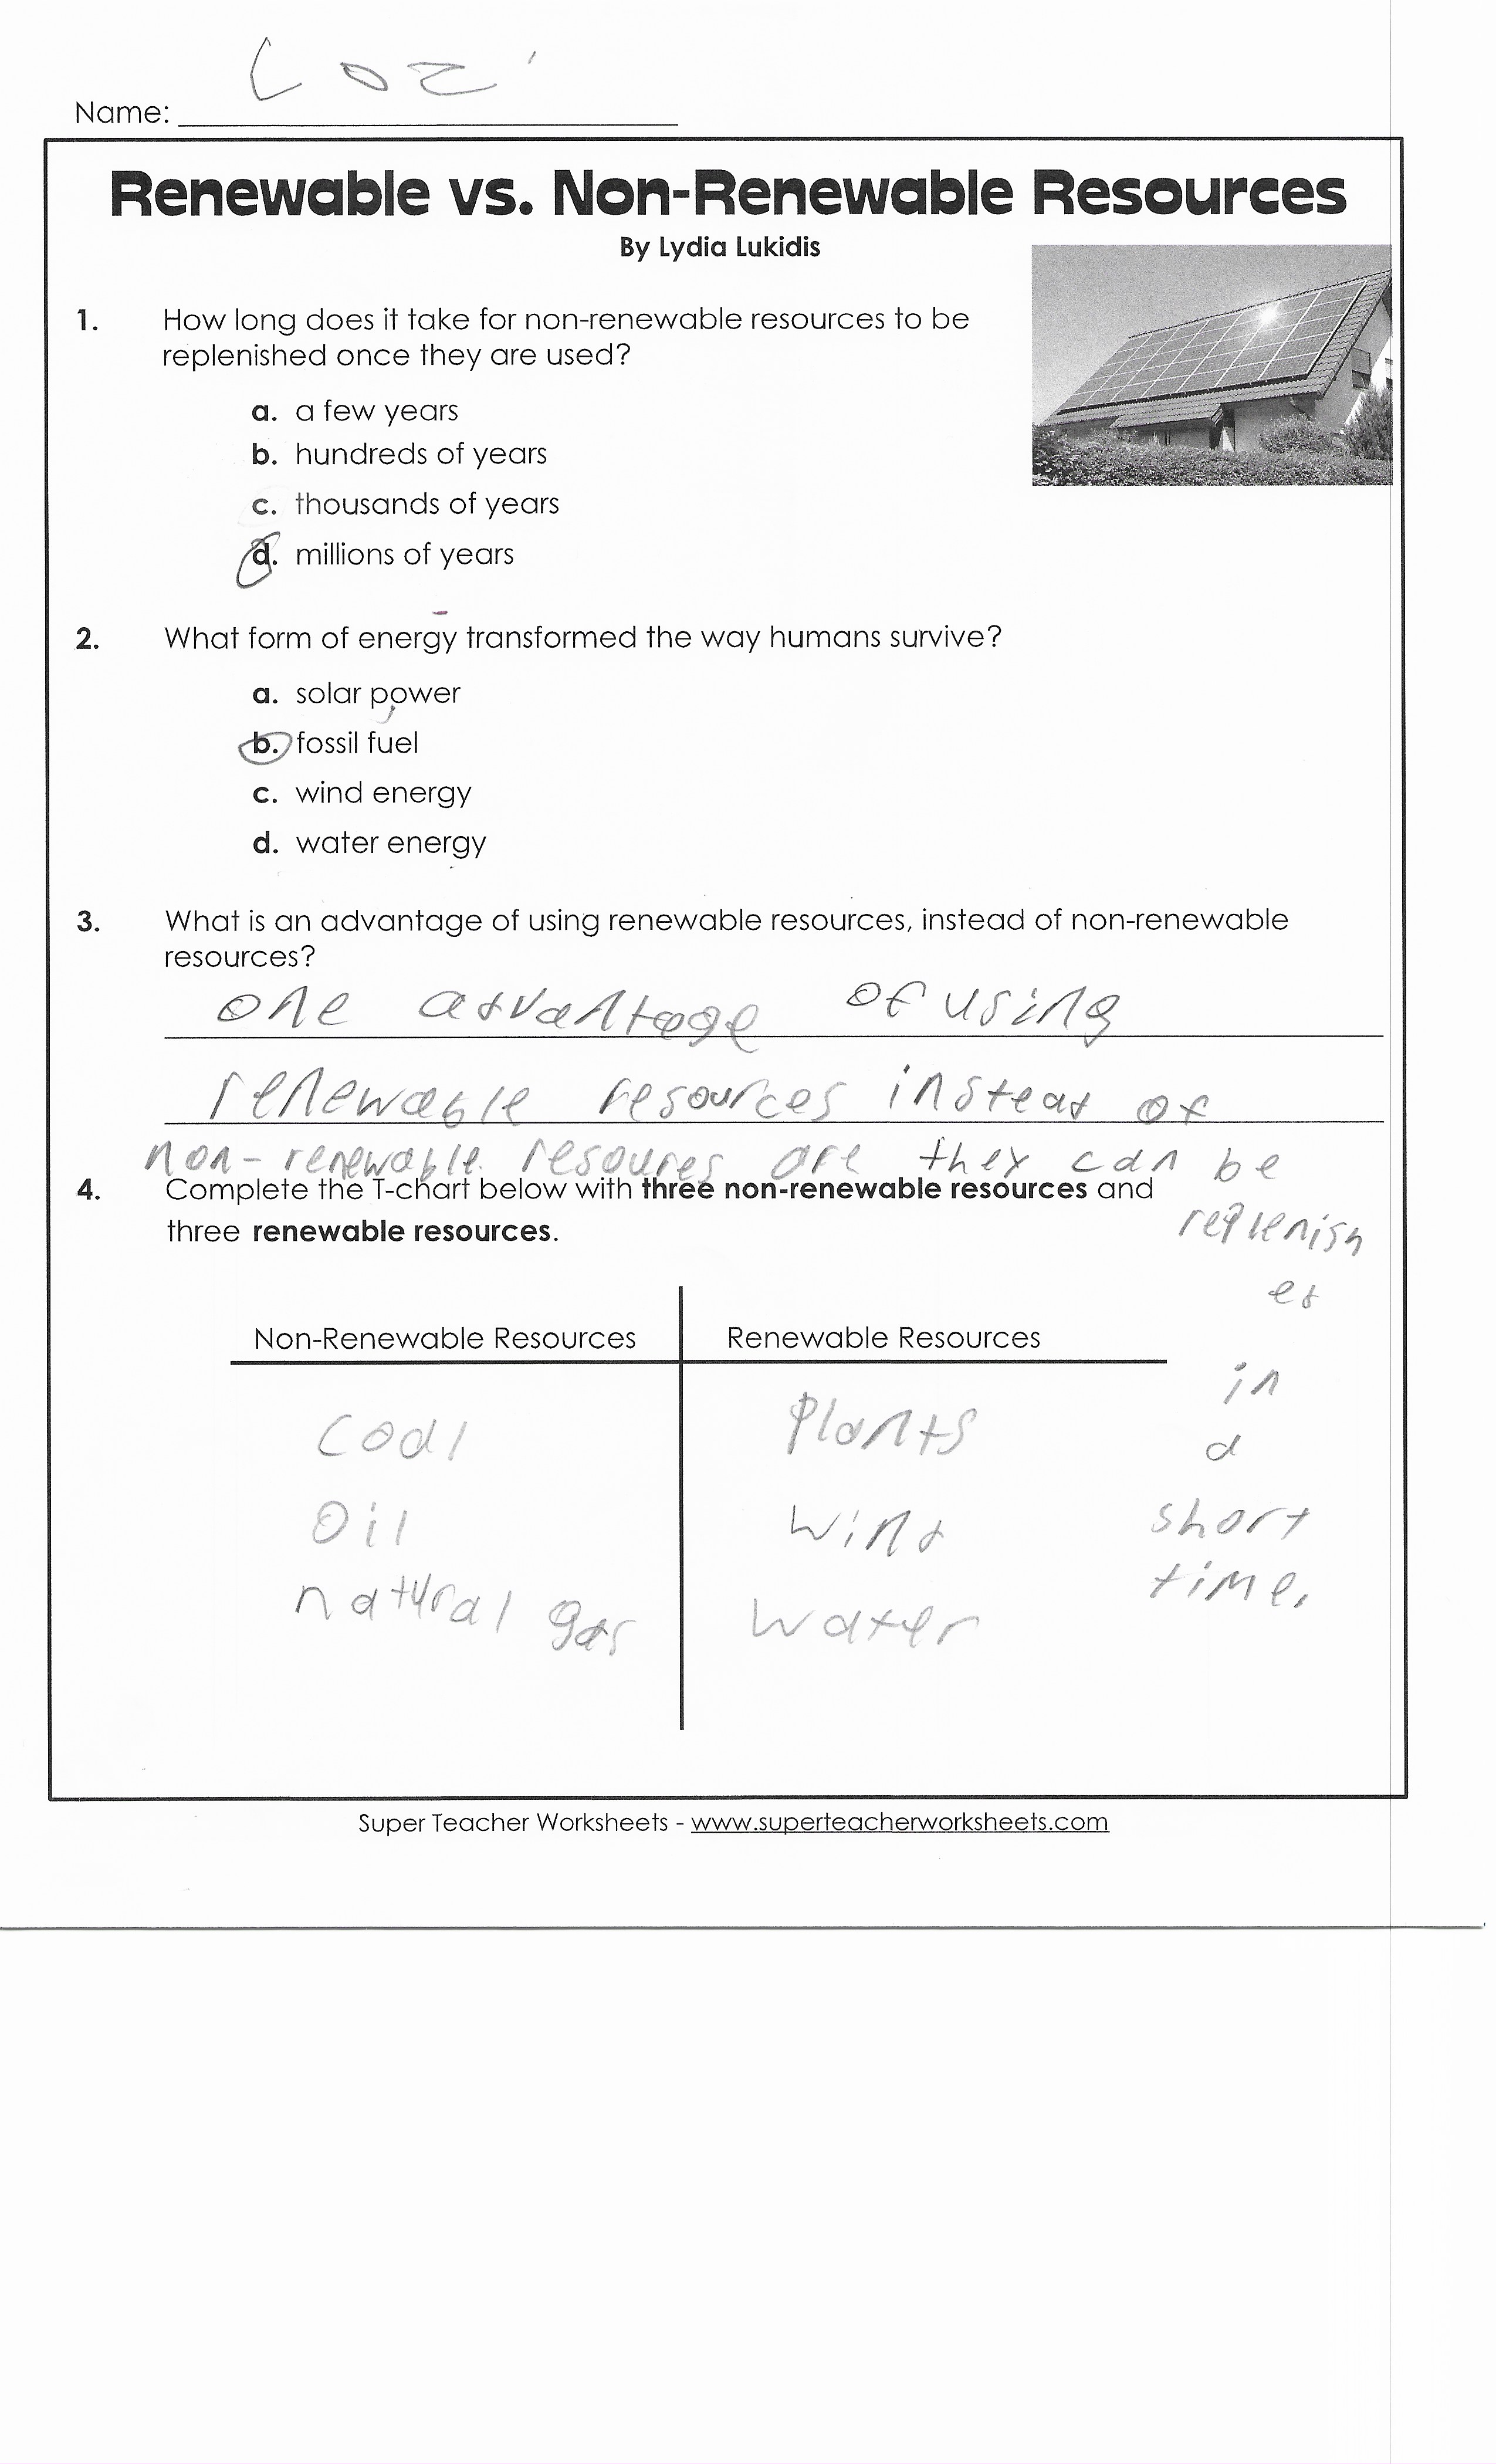 Name:
Renewable vs. Non-Renewable Resources
By Lydia Lukidis
1. How long does it take for non-renewable resources to be
replenished once they are used?
a. a few years
b. hundreds of years
c. thousands of years
d. millions of years
2. What form of energy transformed the way humans survive?
a. solar power
b. fossil fuel
c. wind energy
d. water energy
3. What is an advantage of using renewable resources, instead of non-renewable
resources?
one advantage of using
renewable resources instead of
non-renewable resoures are they can be
replenish
ed
in
a
short
time.
4. Complete the T-chart below with three non-renewable resources and
three renewable resources.
Non-Renewable Resources Renewable Resources
coal Plants
Oil wind
natural gas water
Super Teacher Worksheets - www.superteacherworksheets.com